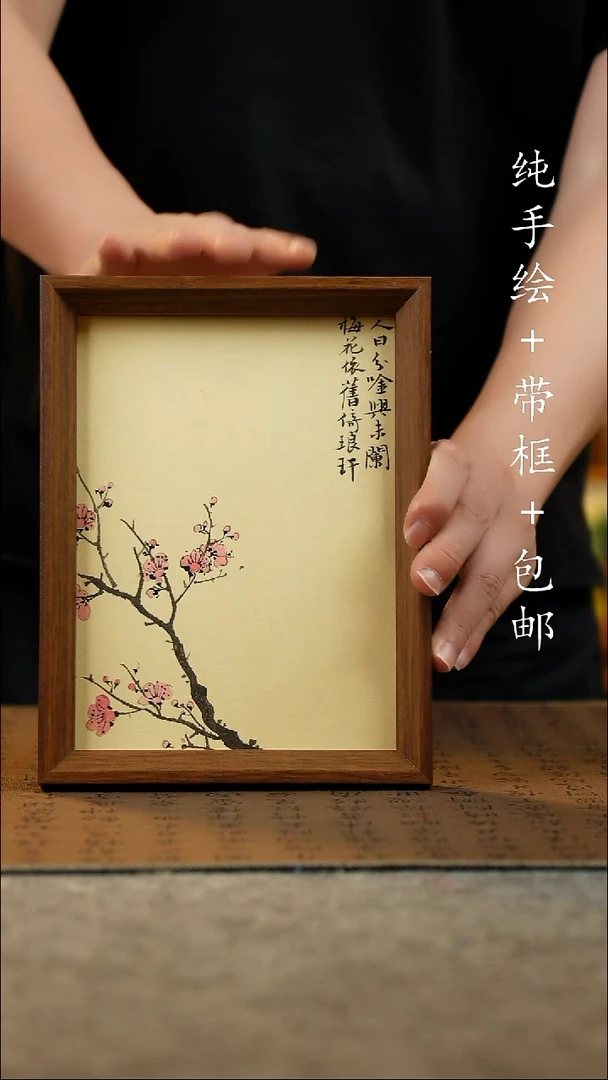 人日分唫興未闌
梅花依舊倚琅玕
纯手绘+带框+包邮